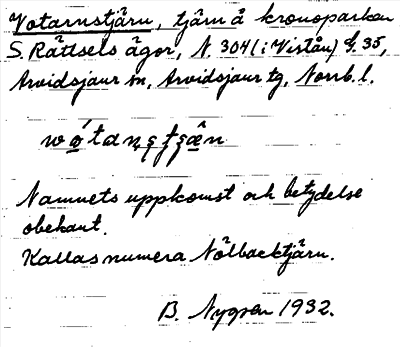 Votarnstjärn, tjärn å kronoparken
S. Rättsels ägor, N. 304 (i Viståu) f. 35,
Arvidsjaur sn, Arvidsjaur tg, Norrb. l.
Namnets uppkomst och betydelse
obekant.
Kallas numera Nölbacktjärn.
B. Nygren 1932.